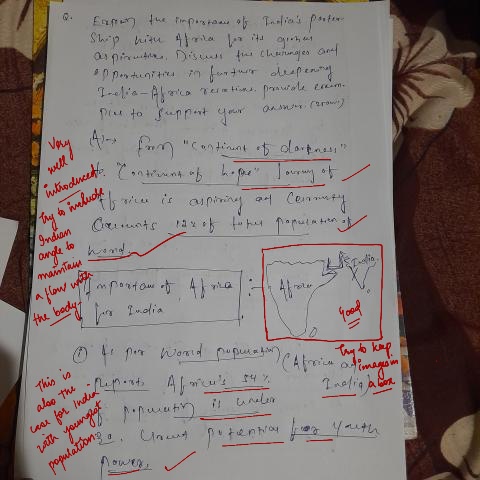 Q. Explain the importance of India's partner-
Ship with Africa for its global
aspirations. Discuss the challenges and
opportunities in further deepening
India-Africa relations. provide exam-
ples to support your answer.
A) → from "Continent of darkness"
to "Continent of hope" Journey of
Africa is aspiring and currently
accounts 12% of total population of
world.
Very
well
introduced
Try to include
Indian
angle to
maintain
a flow with
the body.
Importance of Africa
for India
:-
Africa
India
Good
Try to keep
images in
a box
① As per World population (Africa and
Reports Africa's 54% India)
of population is under
20. Great potential for youth
power.
This is
also the
case for India
with youngest
population.